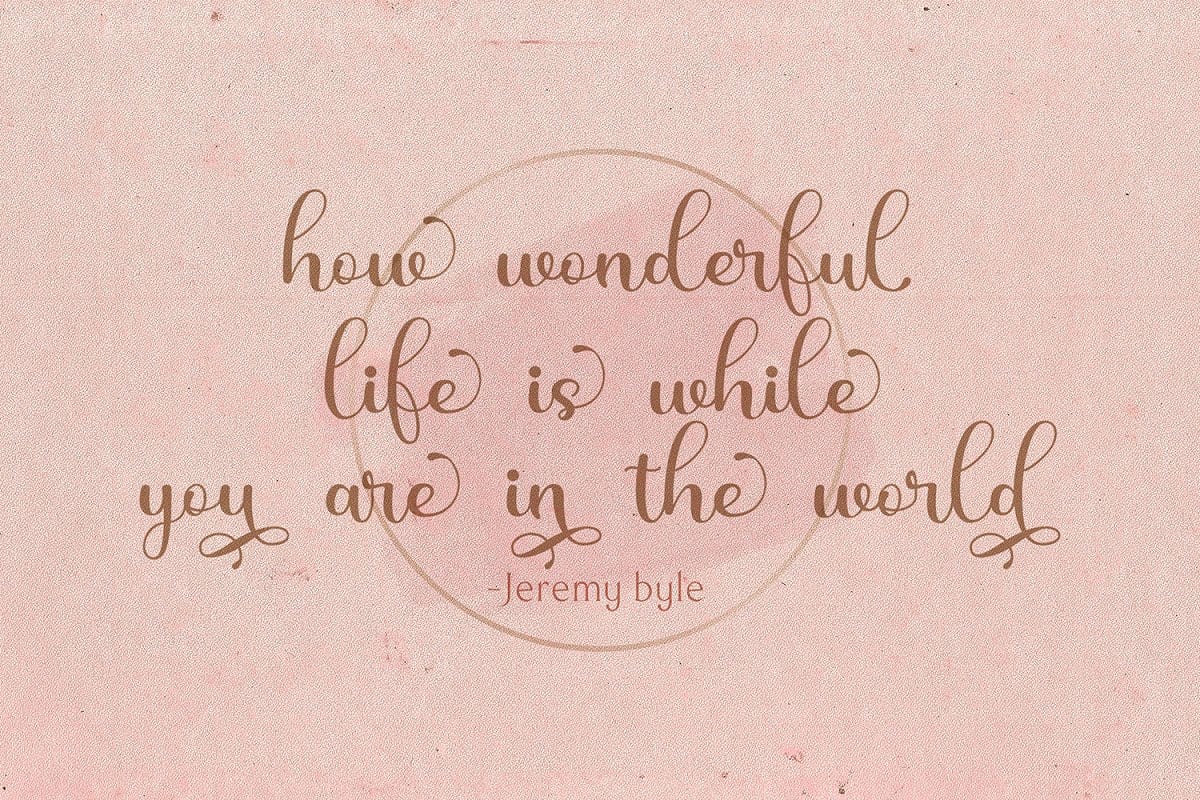 how wonderful
life is while
you are in the world
-Jeremy byle